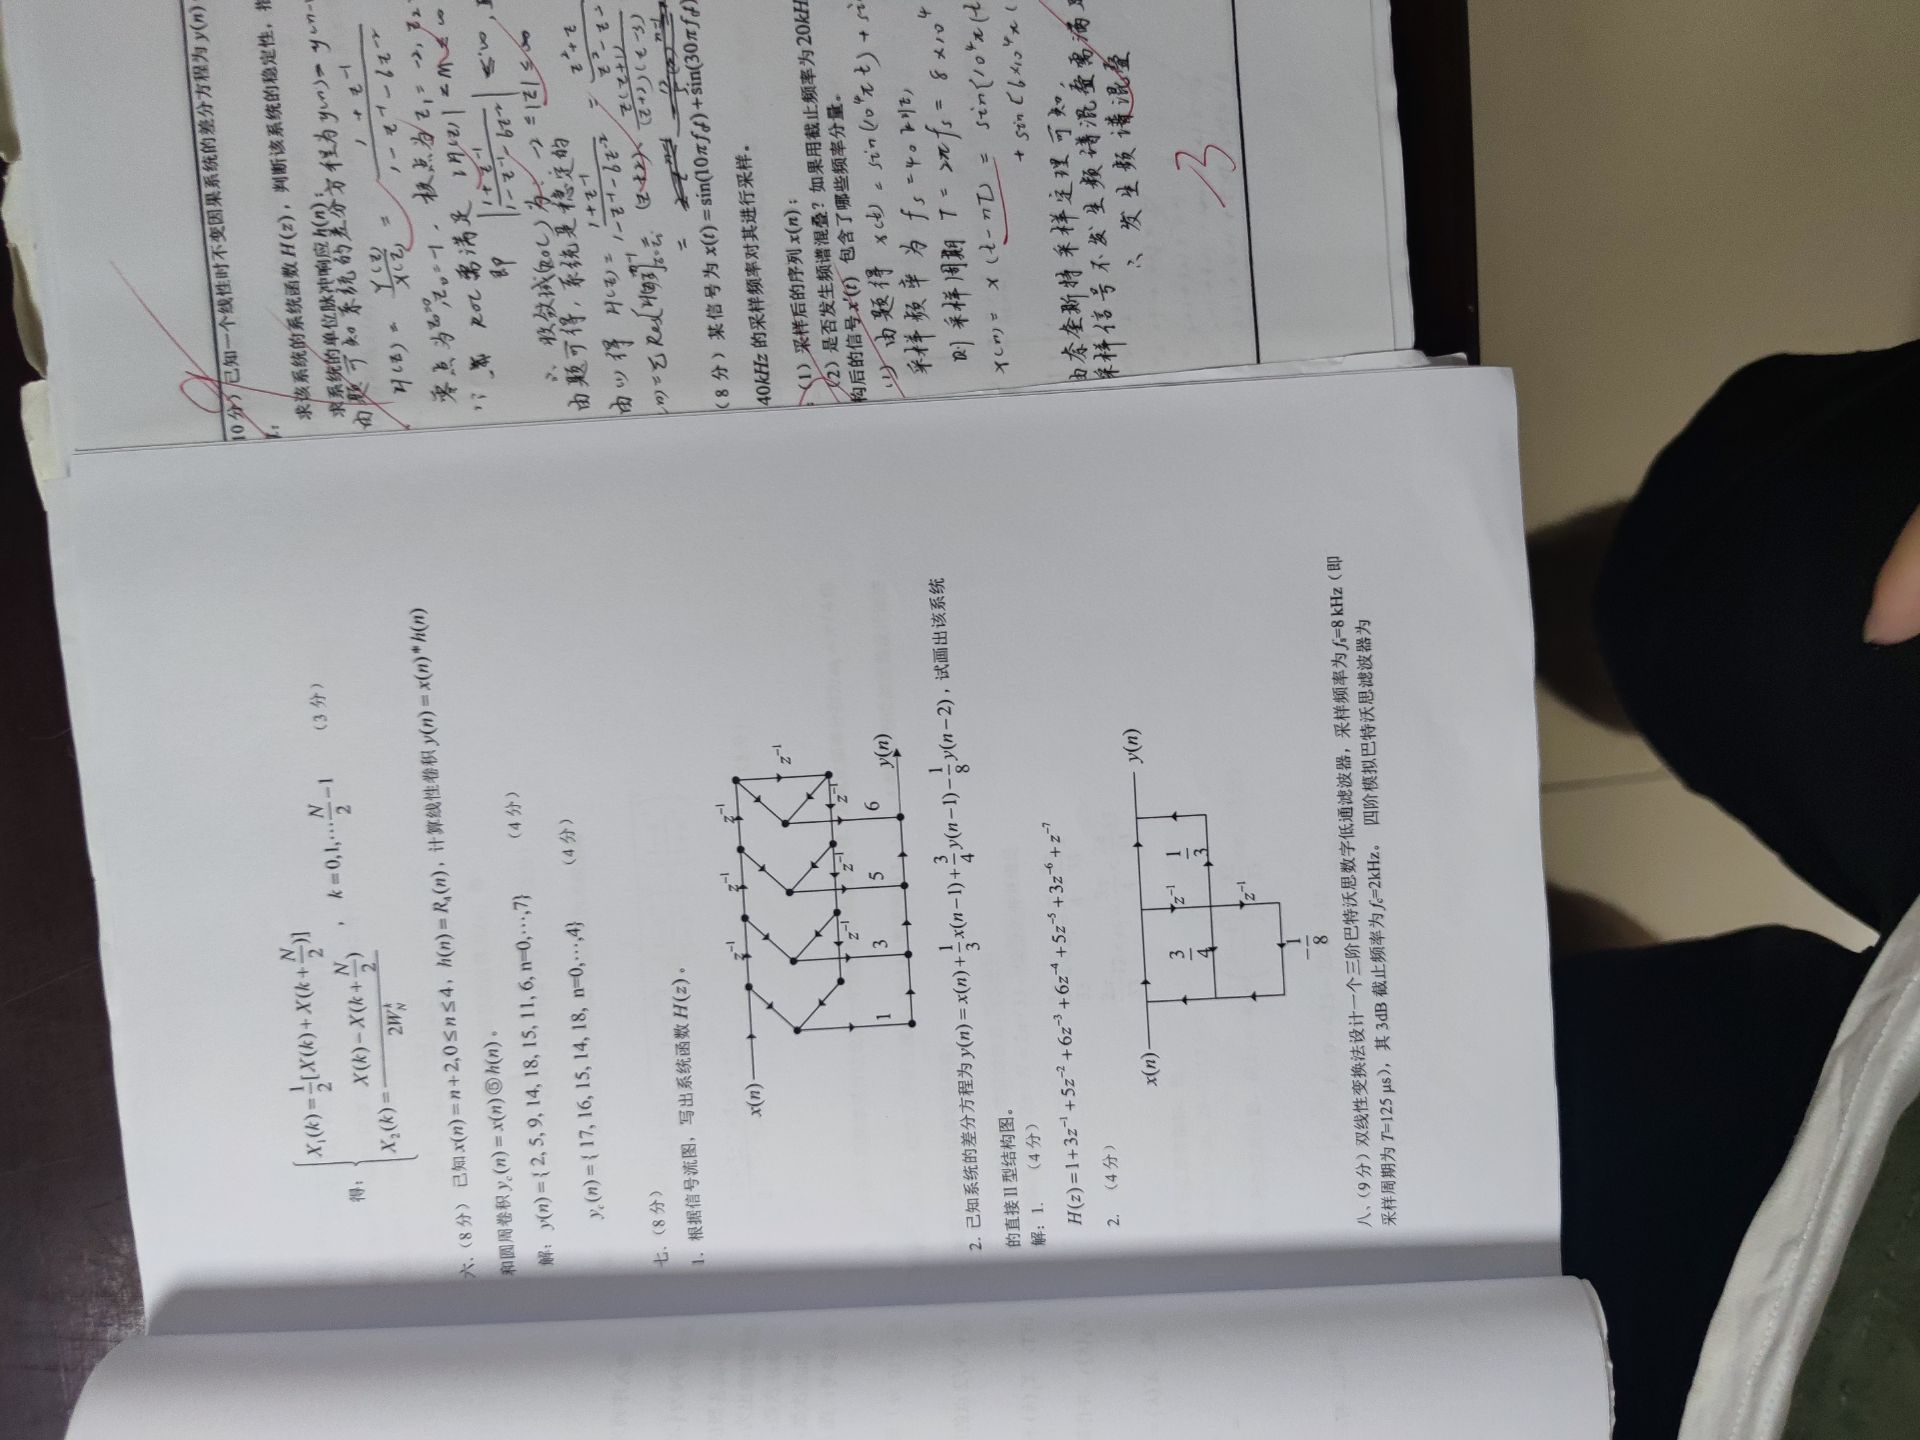 得： X₁(k)=1/2[X(k)+X(k+N/2)]
X₂(k)=(X(k)−X(k+N/2))/(2W_N^k) ， k=0,1,⋯N/2−1 （3分）
六.（8分） 已知 x(n)=n+2,0≤n≤4，h(n)=R₄(n)，计算线性卷积 y(n)=x(n)*h(n)
和圆周卷积 y_c(n)=x(n)⑤h(n)。
解：y(n)={ 2, 5, 9, 14, 18, 15, 11, 6, n=0,⋯,7} （4分）
y_c(n)={ 17, 16, 15, 14, 18, n=0,⋯,4} （4分）
七.（8分）
1. 根据信号流图，写出系统函数 H(z)。
x(n) z⁻¹ z⁻¹ z⁻¹
z⁻¹
z⁻¹ z⁻¹ z⁻¹
1 3 5 6 y(n)
2. 已知系统的差分方程为 y(n)=x(n)+1/3x(n−1)+3/4y(n−1)−1/8y(n−2)，试画出该系统
的直接Ⅱ型结构图。
解：1. （4分）
H(z)=1+3z⁻¹+5z⁻²+6z⁻³+6z⁻⁴+5z⁻⁵+3z⁻⁶+z⁻⁷
2. （4分）
x(n) y(n)
3/4 z⁻¹ 1/3
z⁻¹
−1/8
八、（9分）双线性变换法设计一个三阶巴特沃思数字低通滤波器，采样频率为 fₛ=8 kHz（即
采样周期为 T=125 μs），其 3dB 截止频率为 f_c=2kHz。 四阶模拟巴特沃思滤波器为
9
10分）已知一个线性时不变因果系统的差分方程为 y(n)
求该系统的系统函数 H(z)，判断该系统的稳定性，指
求系统的单位脉冲响应 h(n)；
由题可知系统的差分方程为y(n)= y(n-
H(z) = Y(z)/X(z) = (1+z⁻¹)/(1-z⁻¹-6z⁻²)
零点为 z₀=-1，极点为z₁=-2, z₂
ROC需满足 |H(z)| ≤M≤∞
即 |(1+z⁻¹)/(1-z⁻¹-6z⁻²)| ≤∞，
∴ 收敛域(ROC)为：-2≤|z|≤∞
由题可得，系统是稳定的
由(1)得 H(z)= (1+z⁻¹)/(1-z⁻¹-6z⁻²) = (z²+z)/(z²-z-
(z+2)· z(z+1)/((z+2)(z-3))
=
（8分）某信号为 x(t)=sin(10πf₀t)+sin(30πf₀t)
40kHz 的采样频率对其进行采样。
（1）采样后的序列 x(n)；
（2）是否发生频谱混叠？如果用截止频率为 20kH
构后的信号 x'(t) 包含了哪些频率分量。
(1) 由题得 x(t) = sin(10⁴πt) + si
采样频率为 fₛ=40kHz,
则采样周期 T = 2πfₛ = 8×10⁴
x(n)= x(t-nT) = sin[10⁴π(t
+ sin[6×10⁴π(
由奈奎斯特采样定理可知,
采样信号不发生频谱混叠需满足
∴ 发生频谱混叠
3